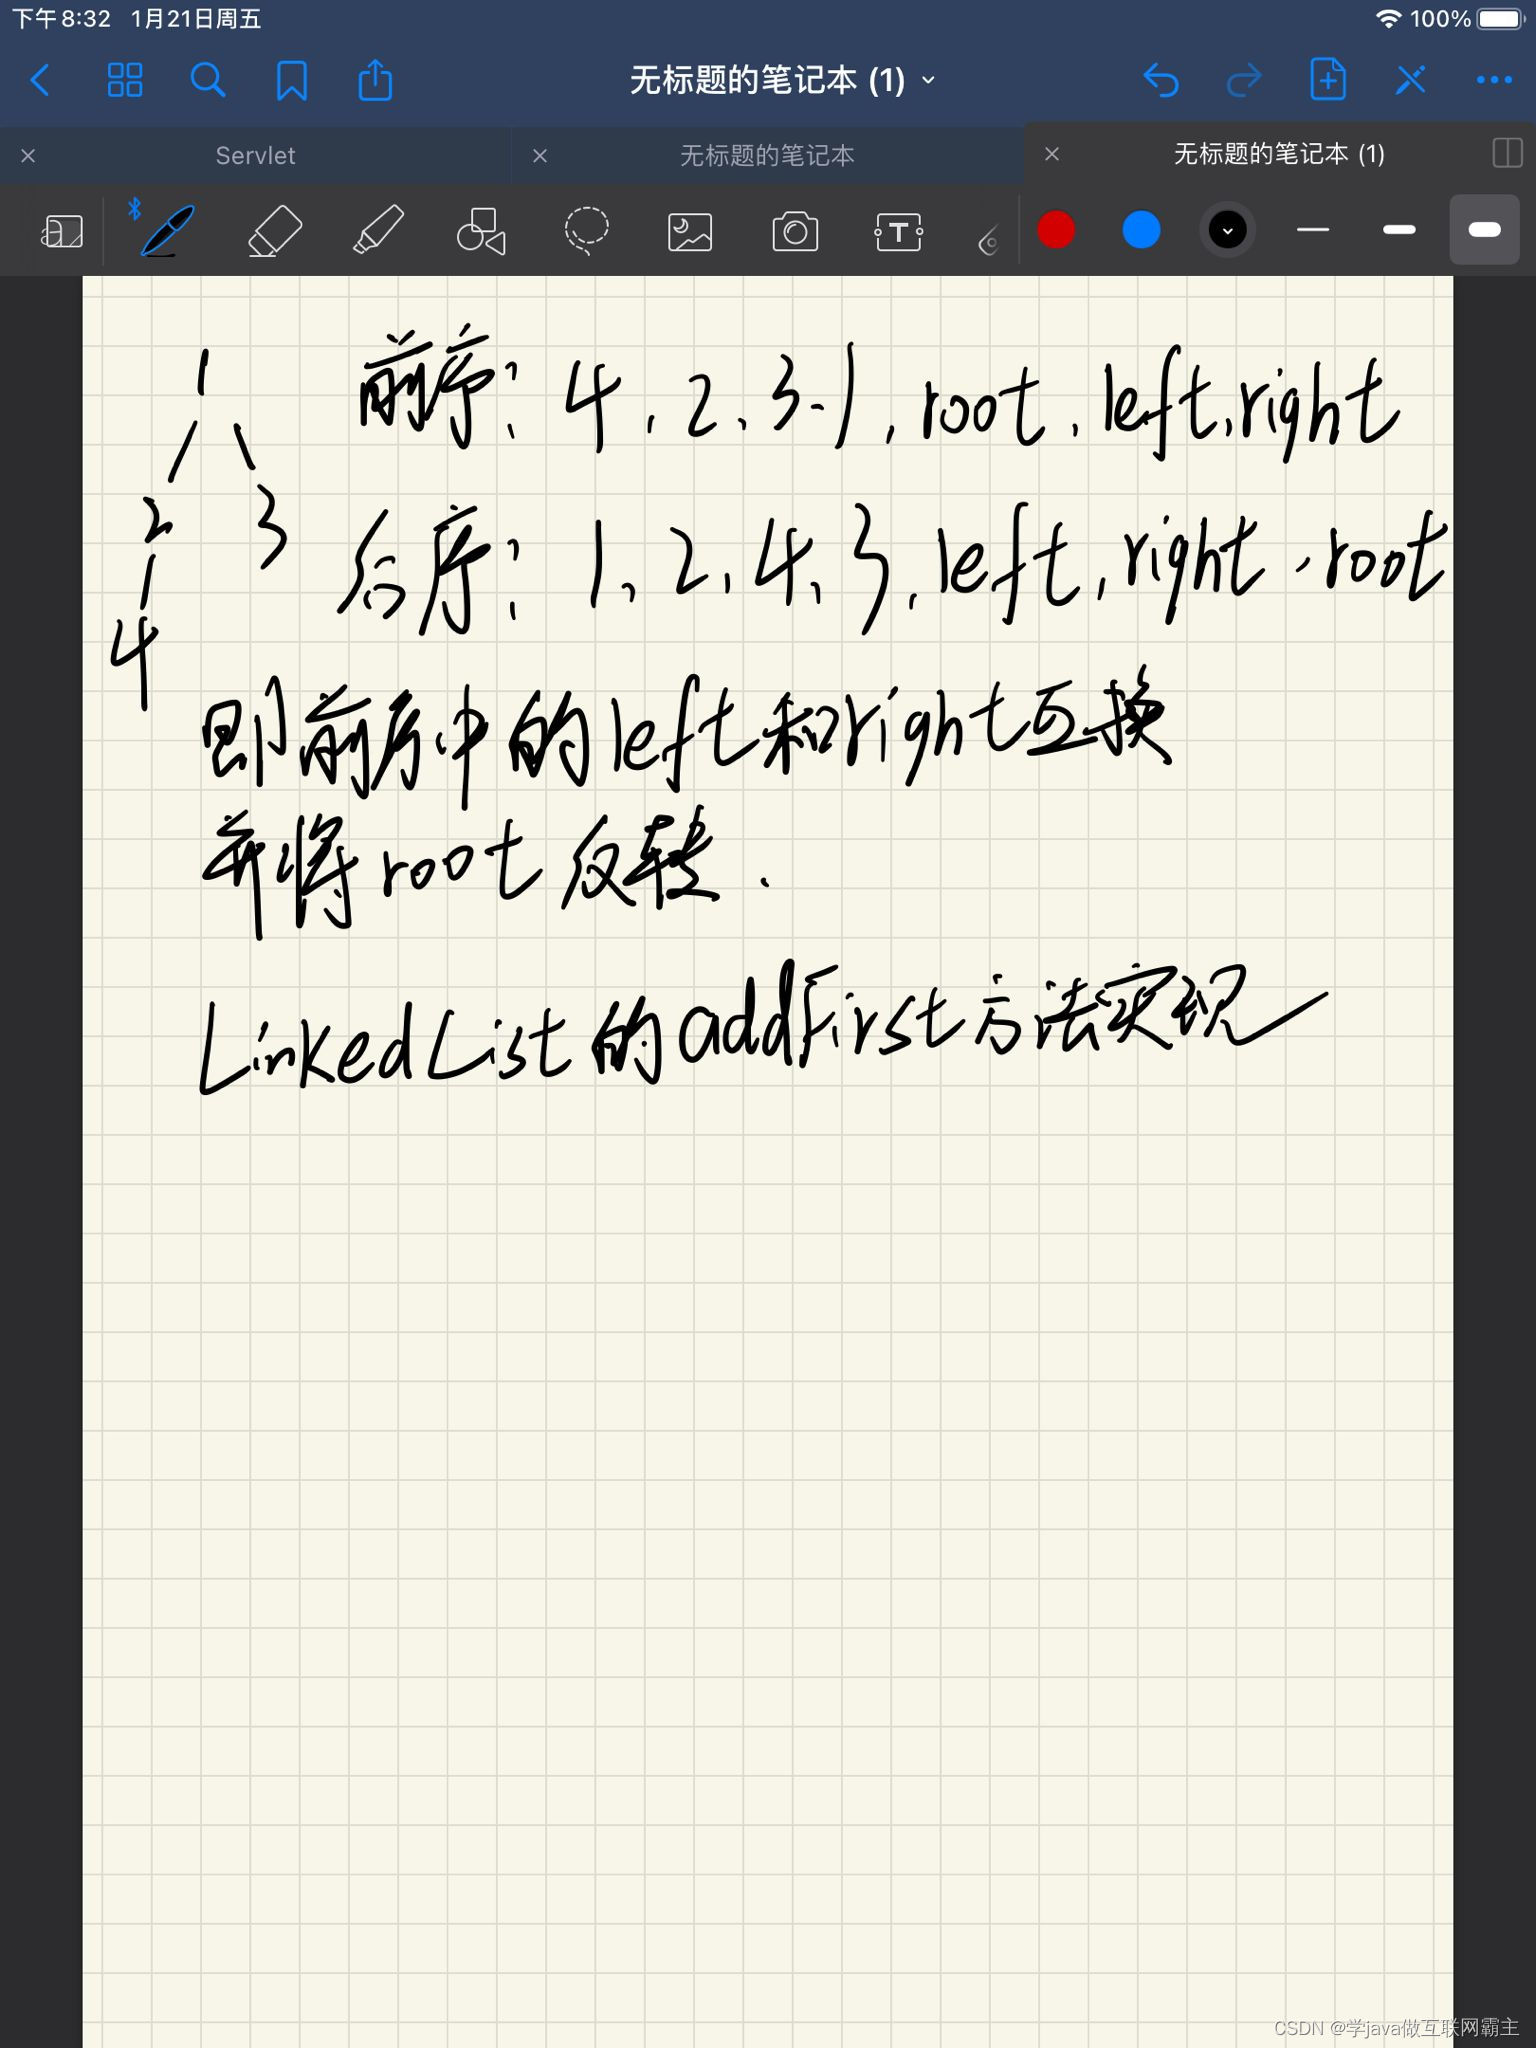 下午8:32 1月21日周五 100%
无标题的笔记本 (1)
Servlet 无标题的笔记本 无标题的笔记本 (1)
T
1 前序: 4, 2, 3, 1, root, left, right
2 3 后序: 1, 2, 4, 3, left, right, root
4
即前序中的left和right互换
并将root反转.
LinkedList的addFirst方法实现
CSDN @学java做互联网霸主